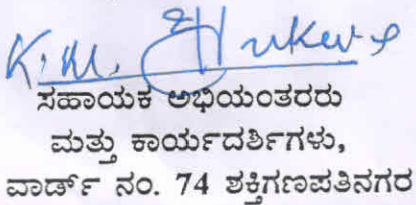 ಸಹಾಯಕ ಅಭಿಯಂತರರು
ಮತ್ತು ಕಾರ್ಯದರ್ಶಿಗಳು,
ವಾರ್ಡ್ ನಂ. 74 ಶಕ್ತಿಗಣಪತಿನಗರ